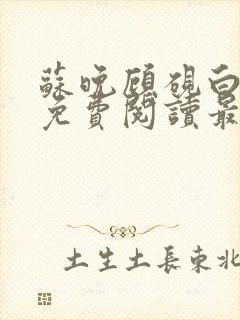 蘇晚顧硯白
免費閱讀最
土生土長東北